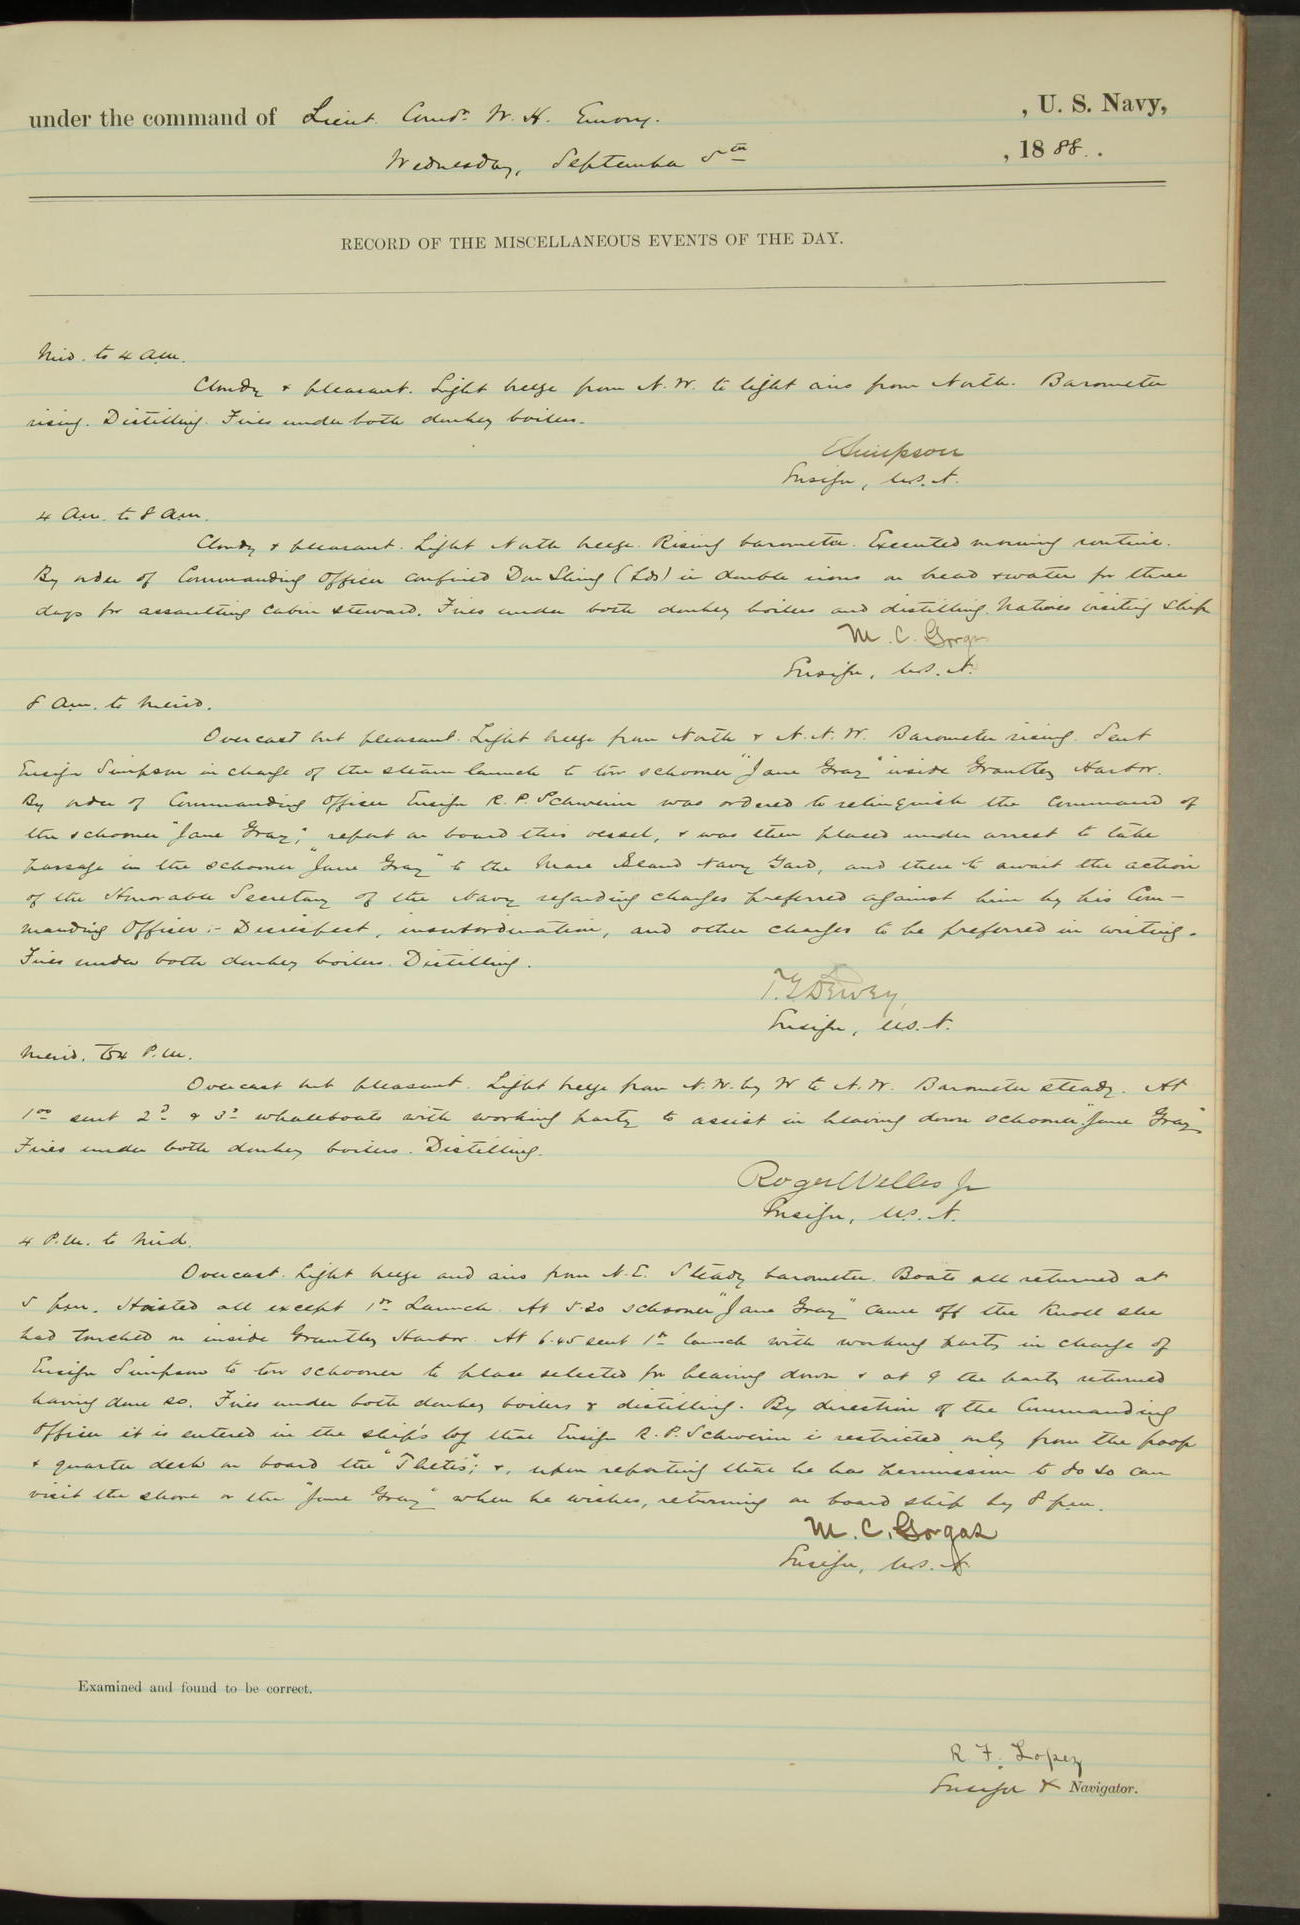 under the command of Lieut. Comdr. W. H. Emory. , U. S. Navy,
Wednesday, September 5th , 1888.
RECORD OF THE MISCELLANEOUS EVENTS OF THE DAY.
Mid. to 4 a.m.
Cloudy & pleasant. Light breeze from N. W. to light airs from North. Barometer
rising. Distilling. Fires under both donkey boilers.
E Simpson
Ensign, U.S.N.
4 a.m. to 8 a.m.
Cloudy & pleasant. Light North breeze. Rising barometer. Executed morning routine.
By order of Commanding Officer confined (Lds) in double irons on bread & water for three
days for assaulting cabin steward. Fires under both donkey boilers and distilling. Natives visiting ship
M. C. Gorgas
Ensign, U.S.N.
8 a.m. to Merid.
Overcast but pleasant. Light breeze from North & N. N. W. Barometer rising. Sent
Ensign Simpson in charge of the steam launch to tow schooner "Jane Gray" inside Grantley Harbor.
By order of Commanding Officer Ensign R. P. Schwerin was ordered to relinquish the command of
the schooner "Jane Gray", report on board this vessel, & was then placed under arrest to take
passage in the schooner "Jane Gray" to the Mare Island Navy Yard, and there to await the action
of the Honorable Secretary of the Navy regarding charges preferred against him by his Com-
manding Officer:- Disrespect, insubordination, and other charges to be preferred in writing.
Fires under both donkey boilers. Distilling.
T. G. Dewey,
Ensign, U.S.N.
Merid. to 4 P.M.
Overcast but pleasant. Light breeze from N. W. by W to N. W. Barometer steady. At
1.00 sent 2d & 3d whaleboats with working party to assist in heaving down schooner "Jane Gray"
Fires under both donkey boilers. Distilling.
Roger Welles Jr
Ensign, U.S.N.
4 P.M. to Mid.
Overcast. Light breeze and airs from N. E. Steady barometer. Boats all returned at
5 p.m. Hoisted all except 1st Launch. At 5.20 schooner "Jane Gray" came off the knoll she
had touched on inside Grantley Harbor. At 6.45 sent 1st launch with working party in charge of
Ensign Simpson to tow schooner to place selected for heaving down & at 9 the party returned
having done so. Fires under both donkey boilers & distilling. By direction of the Commanding
Officer it is entered in the ship's log that Ensign R. P. Schwerin is restricted only from the poop
& quarter deck on board the "Thetis"; &, upon reporting that he has permission to do so can
visit the shore or the "Jane Gray" when he wishes, returning on board ship by 8 p.m.
M. C. Gorgas
Ensign, U.S.N.
Examined and found to be correct.
R. F. Lopez
Ensign & Navigator.